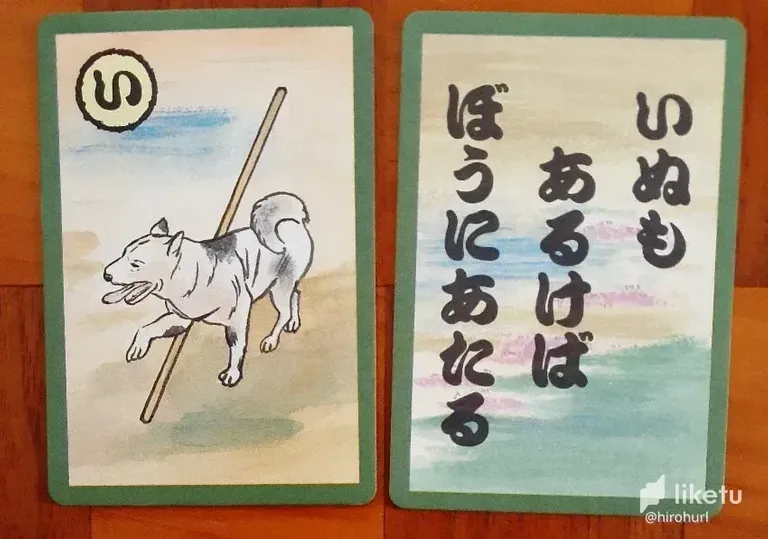 い
いぬも
あるけば
ぼうにあたる
liketu
@hirohurl